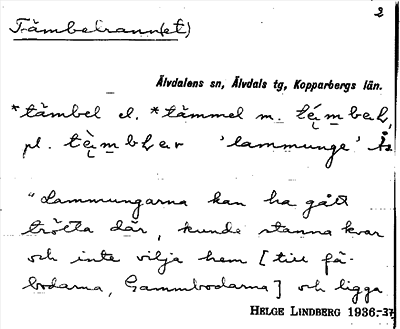 2
Tämbelrann(et)
Älvdalens sn, Älvdals tg, Kopparbergs län.
*tämbel el. *tämmel m.
pl. 'lammunge'
"Lammungarna kan ha gått
trötta där, kunde stanna kvar
och inte vilja hem [till fä-
bodarna, Gammbodarna] och ligga
HELGE LINDBERG 1936-37